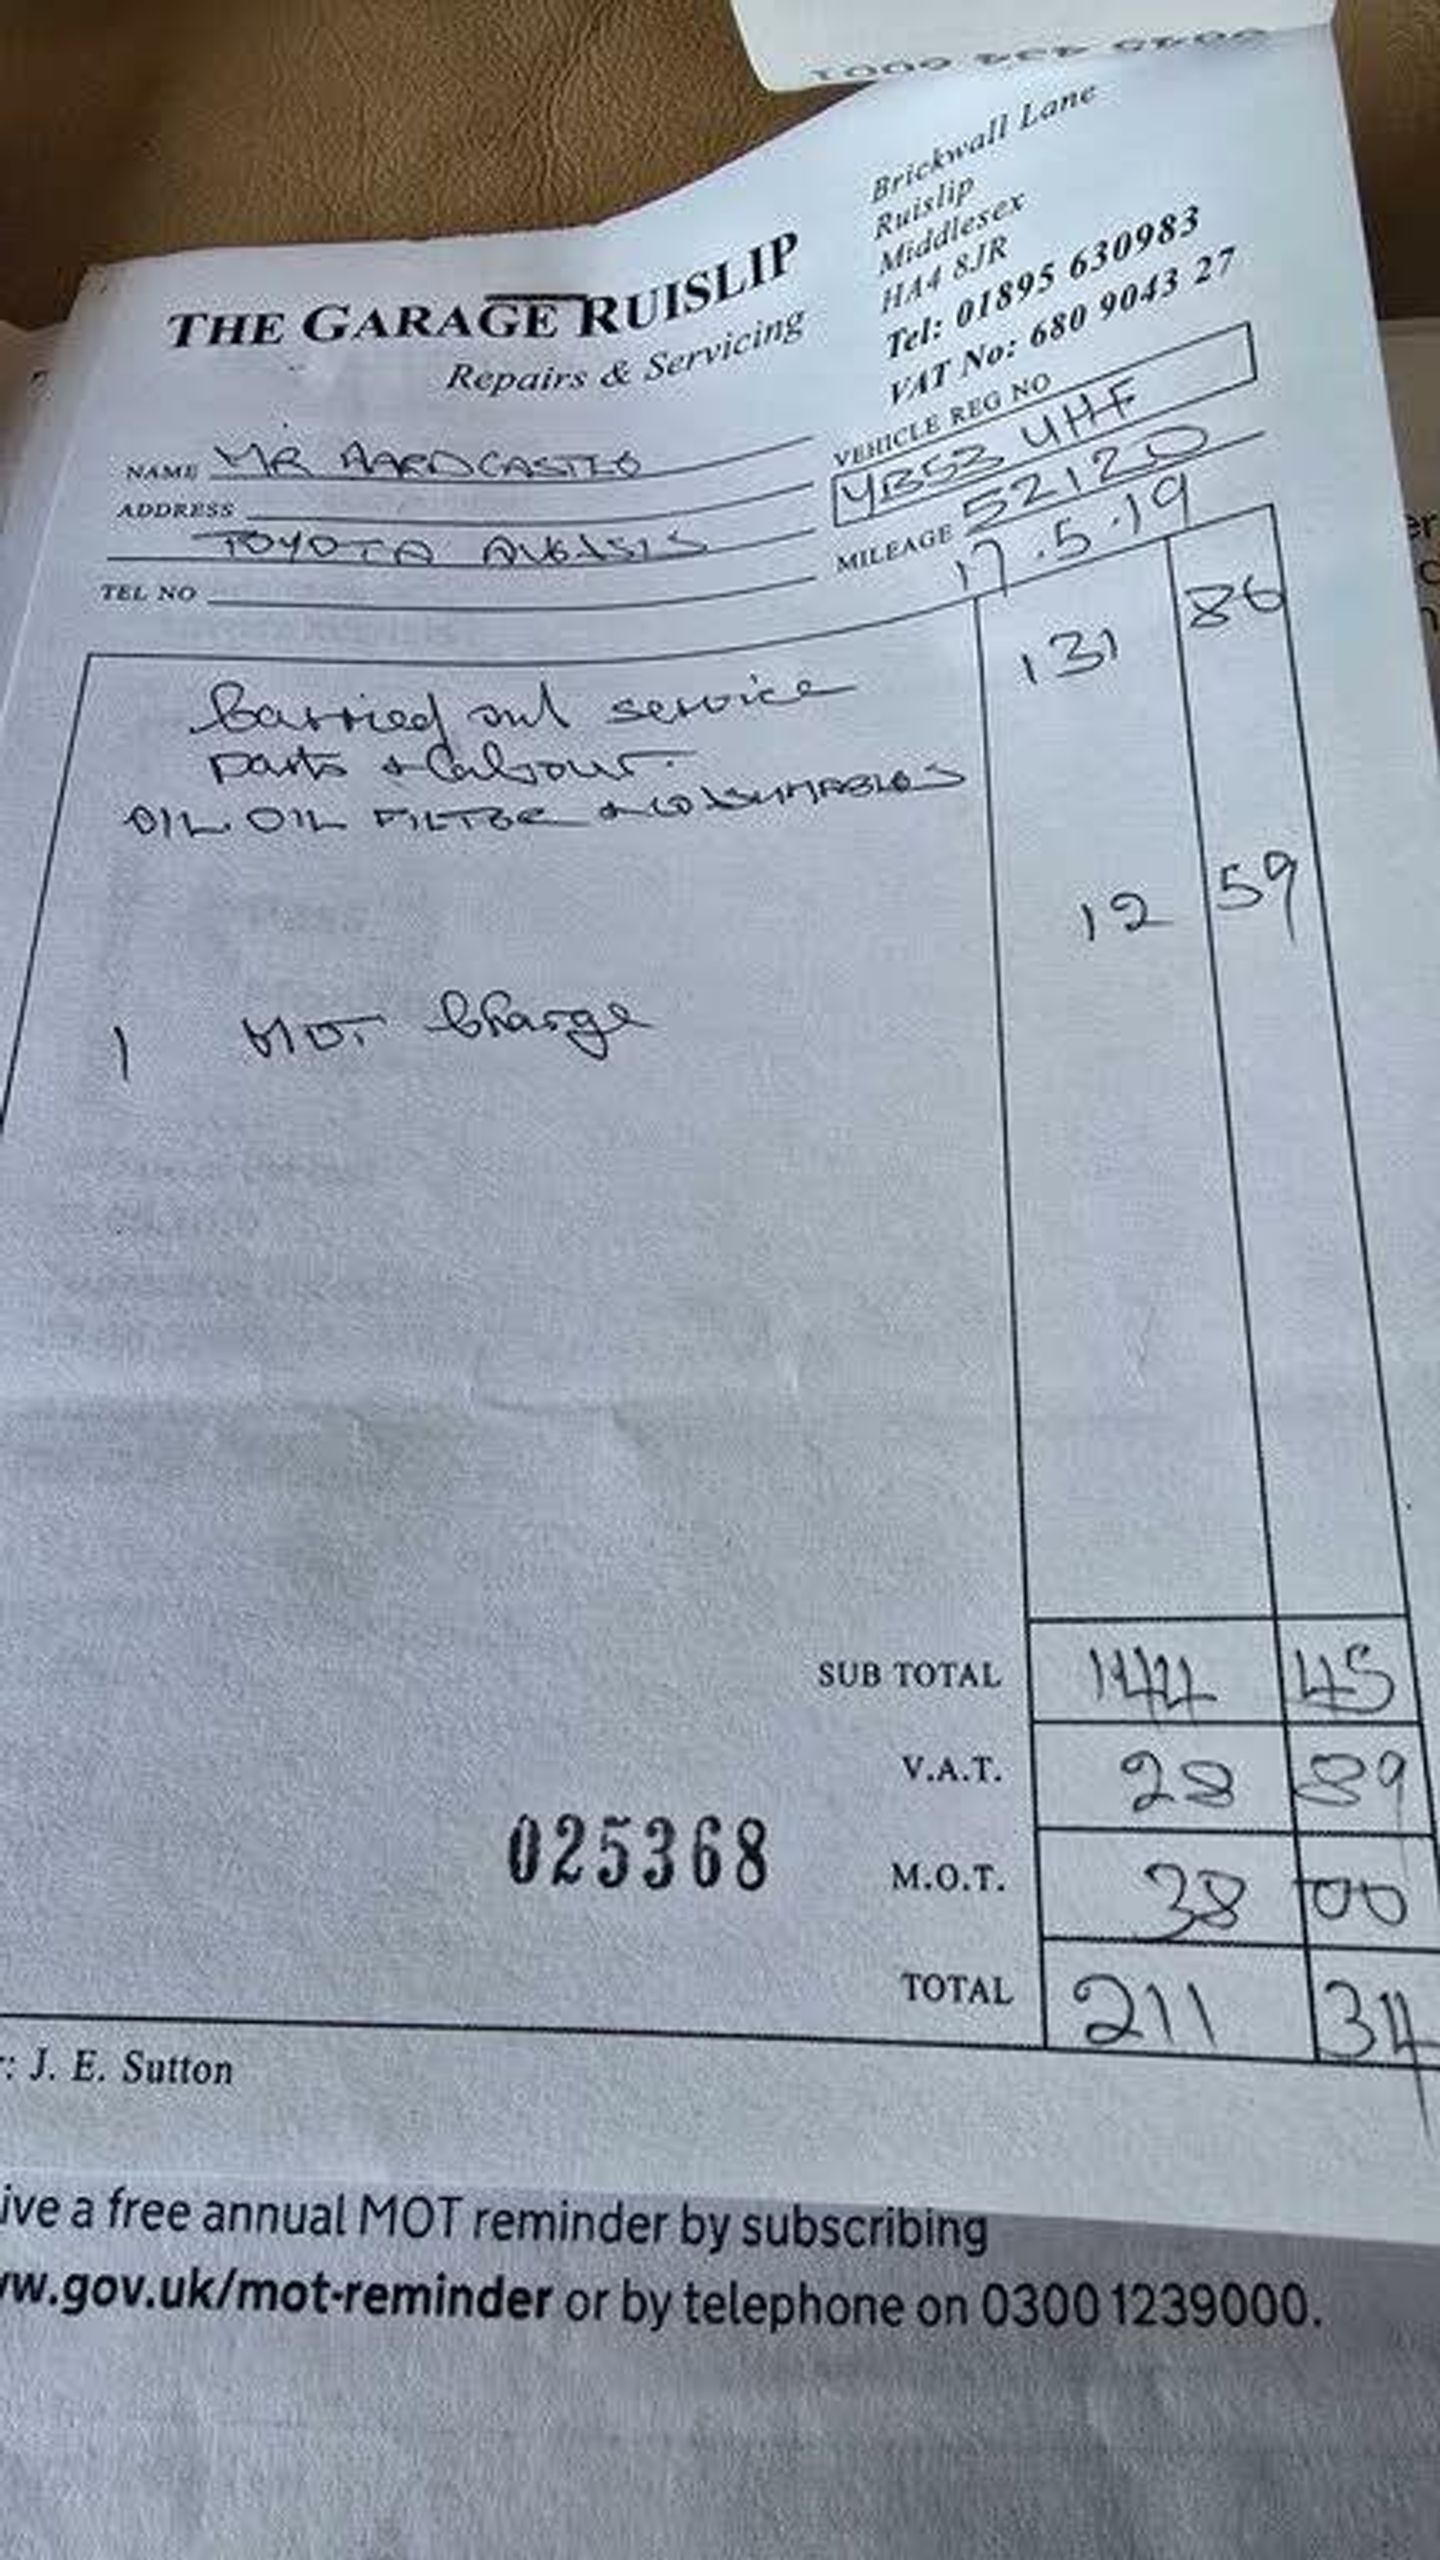 THE GARAGE RUISLIP
Repairs & Servicing
Brickwall Lane
Ruislip
Middlesex
HA4 8JR
Tel: 01895 630983
VAT No: 680 9043 27
NAME MR HARDCASTLE
VEHICLE REG NO
YB53 UHF
ADDRESS
TOYOTA AVENSIS
MILEAGE 52120
TEL NO
17.5.19
Carried out service 131 86
parts & Labour.
OIL OIL FILTER & CONSUMABLES
12 59
1 MOT Charge
SUB TOTAL 144 45
V.A.T. 28 89
025368
M.O.T. 38 00
TOTAL 211 34
: J. E. Sutton
ive a free annual MOT reminder by subscribing
ww.gov.uk/mot-reminder or by telephone on 0300 1239000.